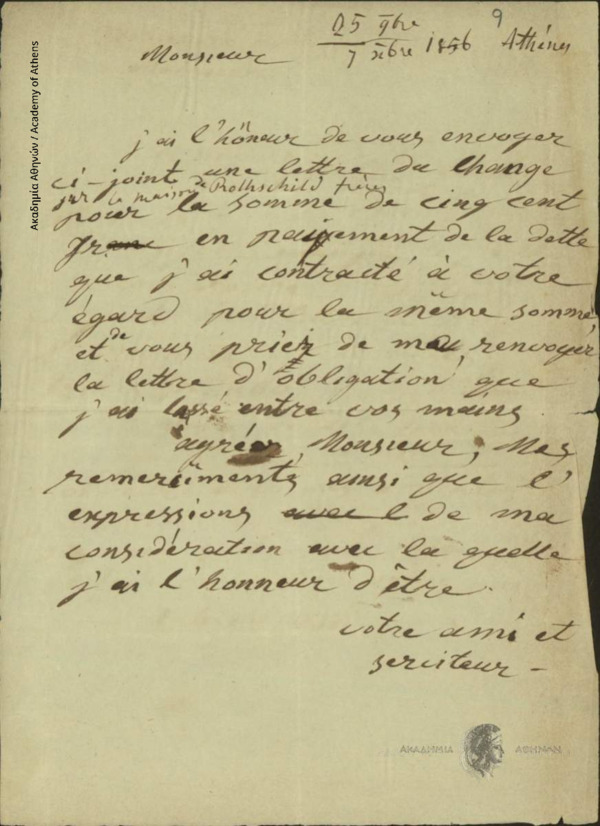 9
25 9bre
7 xbre 1856 Athénes
Monsieur
j'ai l'hôneur de vous envoyer
ci-joint une lettre du Change
sur la maison de Rothschild frères
pour la somme de cinq cent
franc en paiyement de la dette
que j'ai contracté à votre
égard pour la même somme,
et de vous priez de me renvoyer
la lettre d'obligation que
j'ai lassé entre vos mains
agréer, Monsieur, Mes
remerciments ainsi que l'
expressions avec l de ma
considération avec la quelle
j'ai l'honneur d'être
votre ami et
serviteur -
Ακαδημία Αθηνών / Academy of Athens
ΑΚΑΔΗΜΙΑ ΑΘΗΝΩΝ